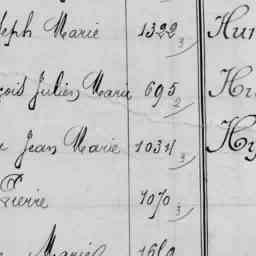 seph Marie 1322 3 Hu
çois Julien Marie 695 2 Hu
Jean Marie 1034 3 Hy
Pierre 1070 3
Marie